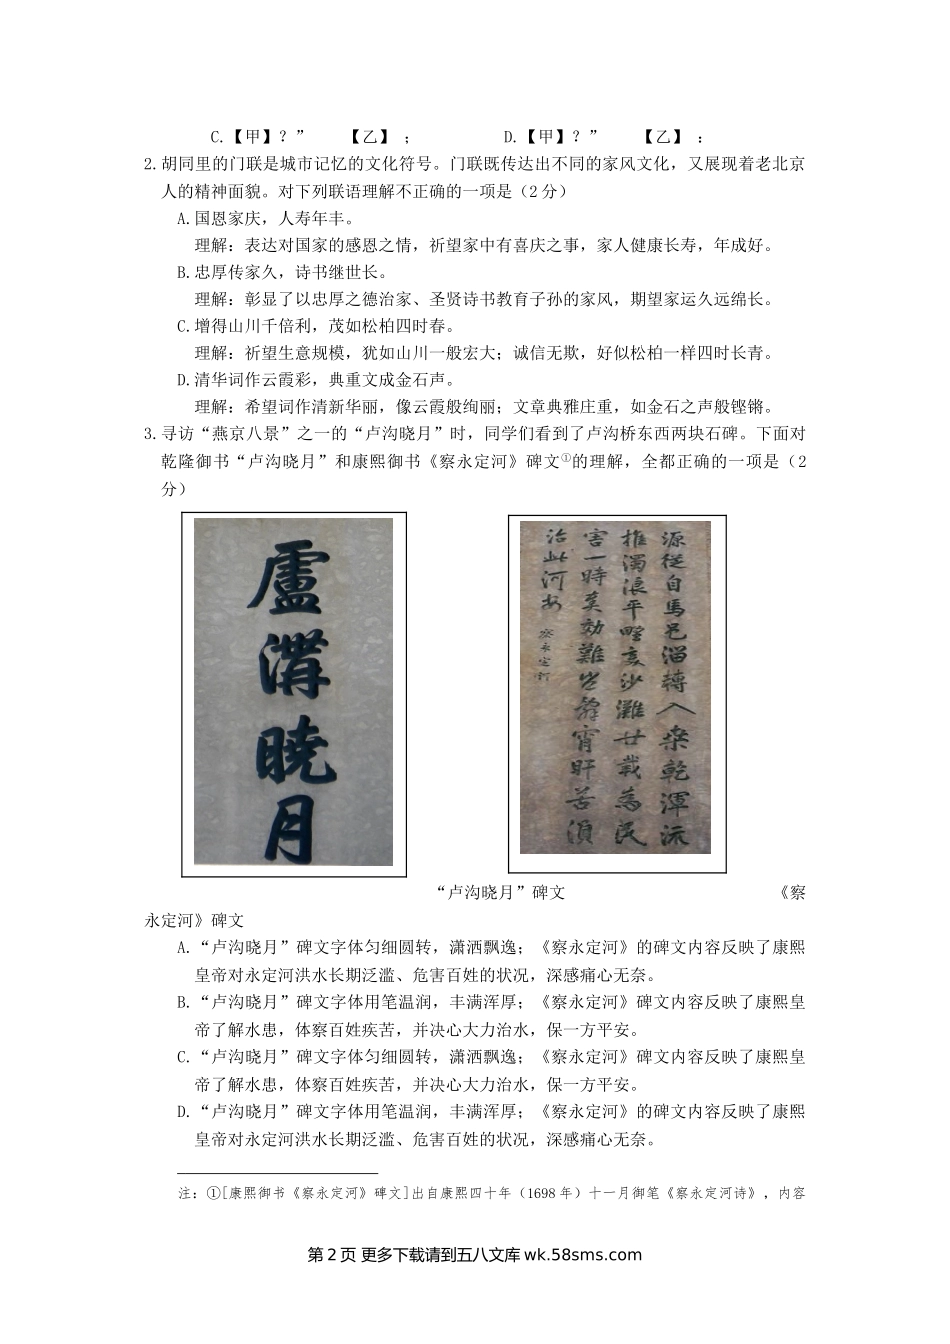 C.【甲】？” 【乙】；  D.【甲】？” 【乙】：
2.胡同里的门联是城市记忆的文化符号。门联既传达出不同的家风文化，又展现着老北京
人的精神面貌。对下列联语理解不正确的一项是（2 分）
A.国恩家庆，人寿年丰。
理解：表达对国家的感恩之情，祈望家中有喜庆之事，家人健康长寿，年成好。
B.忠厚传家久，诗书继世长。
理解：彰显了以忠厚之德治家、圣贤诗书教育子孙的家风，期望家运久远绵长。
C.增得山川千倍利，茂如松柏四时春。
理解：祈望生意规模，犹如山川一般宏大；诚信无欺，好似松柏一样四时长青。
D.清华词作云霞彩，典重文成金石声。
理解：希望词作清新华丽，像云霞般绚丽；文章典雅庄重，如金石之声般铿锵。
3.寻访“燕京八景”之一的“卢沟晓月”时，同学们看到了卢沟桥东西两块石碑。下面对
乾隆御书“卢沟晓月”和康熙御书《察永定河》碑文①的理解，全都正确的一项是（2
分）
盧溝曉月
源從自馬邑溜轉入桑乾渾流
推濁浪平野變沙灘廿載為民
害一時莫効難豈辭宵旰苦須
治此河安
察永定河
“卢沟晓月”碑文 《察
永定河》碑文
A.“卢沟晓月”碑文字体匀细圆转，潇洒飘逸；《察永定河》的碑文内容反映了康熙
皇帝对永定河洪水长期泛滥、危害百姓的状况，深感痛心无奈。
B.“卢沟晓月”碑文字体用笔温润，丰满浑厚；《察永定河》碑文内容反映了康熙皇
帝了解水患，体察百姓疾苦，并决心大力治水，保一方平安。
C.“卢沟晓月”碑文字体匀细圆转，潇洒飘逸；《察永定河》碑文内容反映了康熙皇
帝了解水患，体察百姓疾苦，并决心大力治水，保一方平安。
D.“卢沟晓月”碑文字体用笔温润，丰满浑厚；《察永定河》的碑文内容反映了康熙
皇帝对永定河洪水长期泛滥、危害百姓的状况，深感痛心无奈。
注：①[康熙御书《察永定河》碑文]出自康熙四十年（1698 年）十一月御笔《察永定河诗》，内容
第 2 页 更多下载请到五八文库 wk.58sms.com